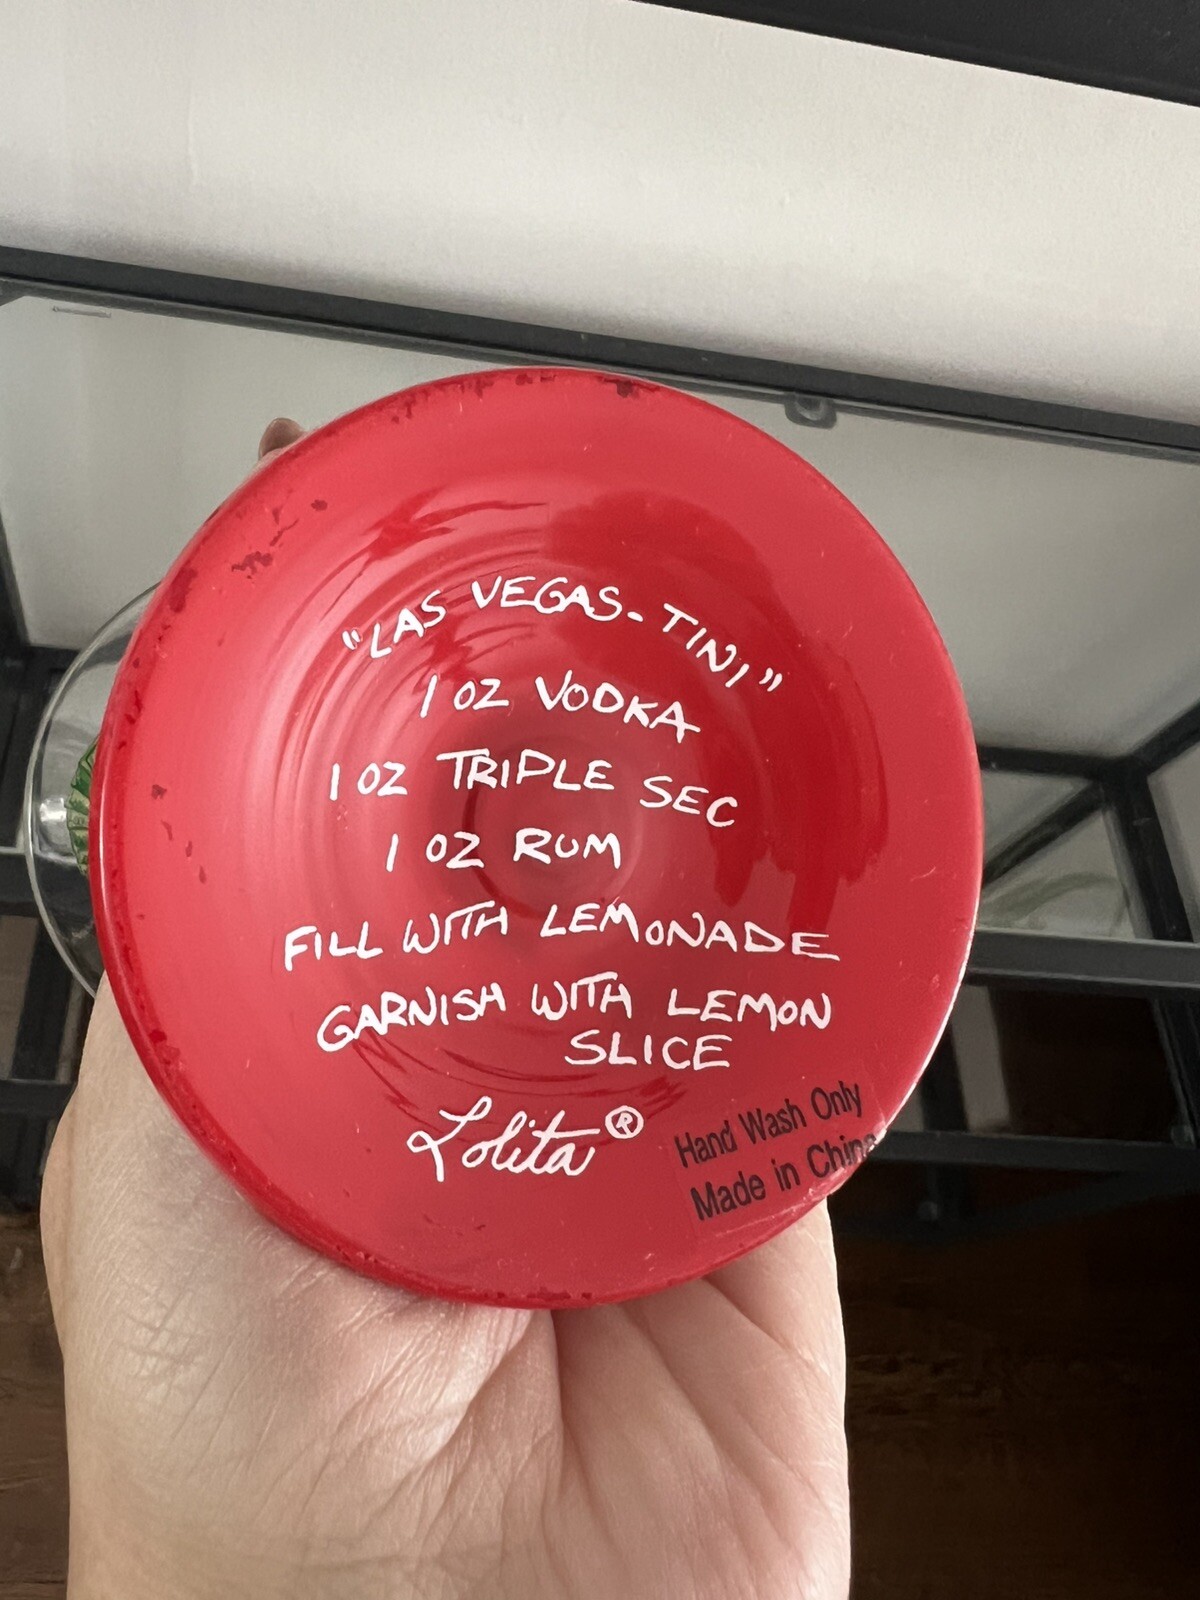 "LAS VEGAS-TINI"
1 OZ VODKA
1 OZ TRIPLE SEC
1 OZ RUM
FILL WITH LEMONADE
GARNISH WITH LEMON
SLICE
Lolita®
Hand Wash Only
Made in China